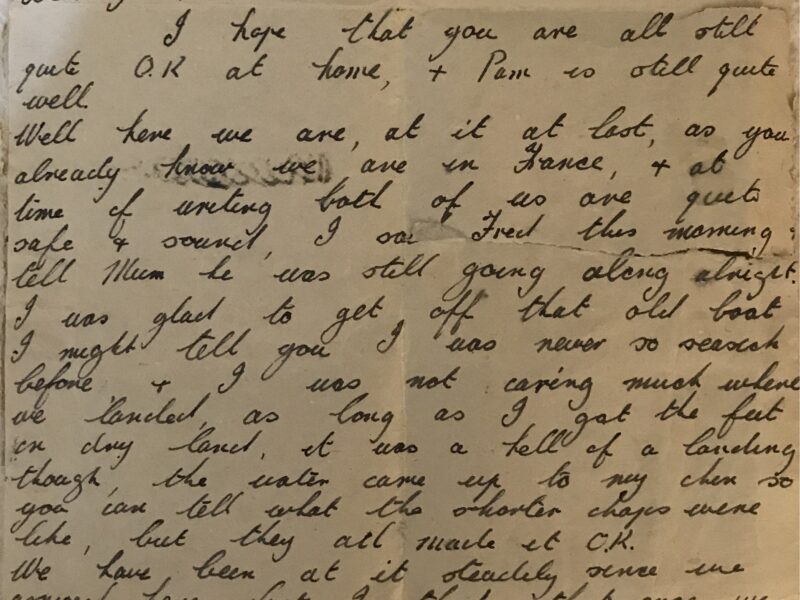 I hope that you are all still
quite O.K at home, + Pam is still quite
well.
Well here we are, at it at last, as you
already know we are in France, + at
time of writing both of us are quite
safe & sound, I saw Fred this morning
tell Mum he was still going along alright.
I was glad to get off that old boat
I might tell you I was never so seasick
before + I was not caring much where
we landed, as long as I got the feet
on dry land, it was a hell of a landing
though, the water came up to my chin so
you can tell what the shorter chaps were
like, but they all made it O.K.
We have been at it steadily since we